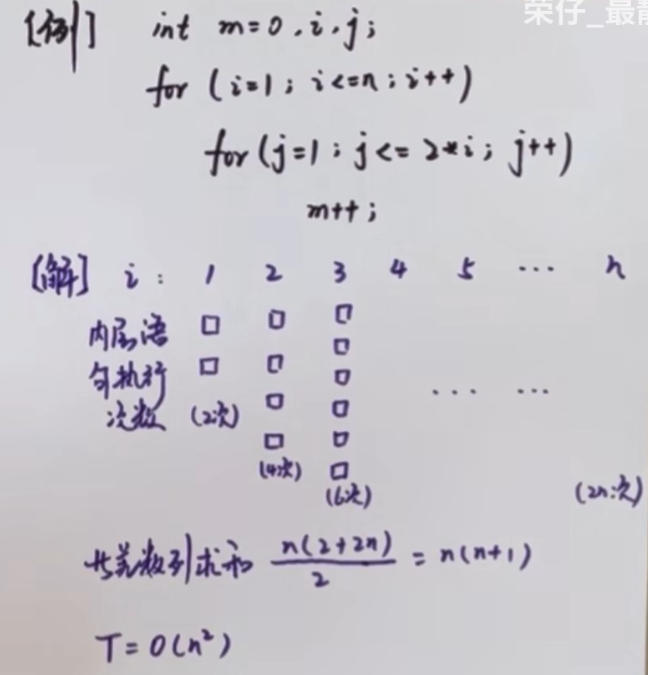 荣仔_最靓
[例] int m=0,i,j;
for (i=1; i<=n; i++)
for (j=1; j<= 2*i; j++)
m++;
[解] i: 1 2 3 4 5 ... n
内层语
句执行
次数 (2次)
... ...
(4次)
(6次)
(2n次)
等差数列求和 n(2+2n)/2 = n(n+1)
T=O(n²)